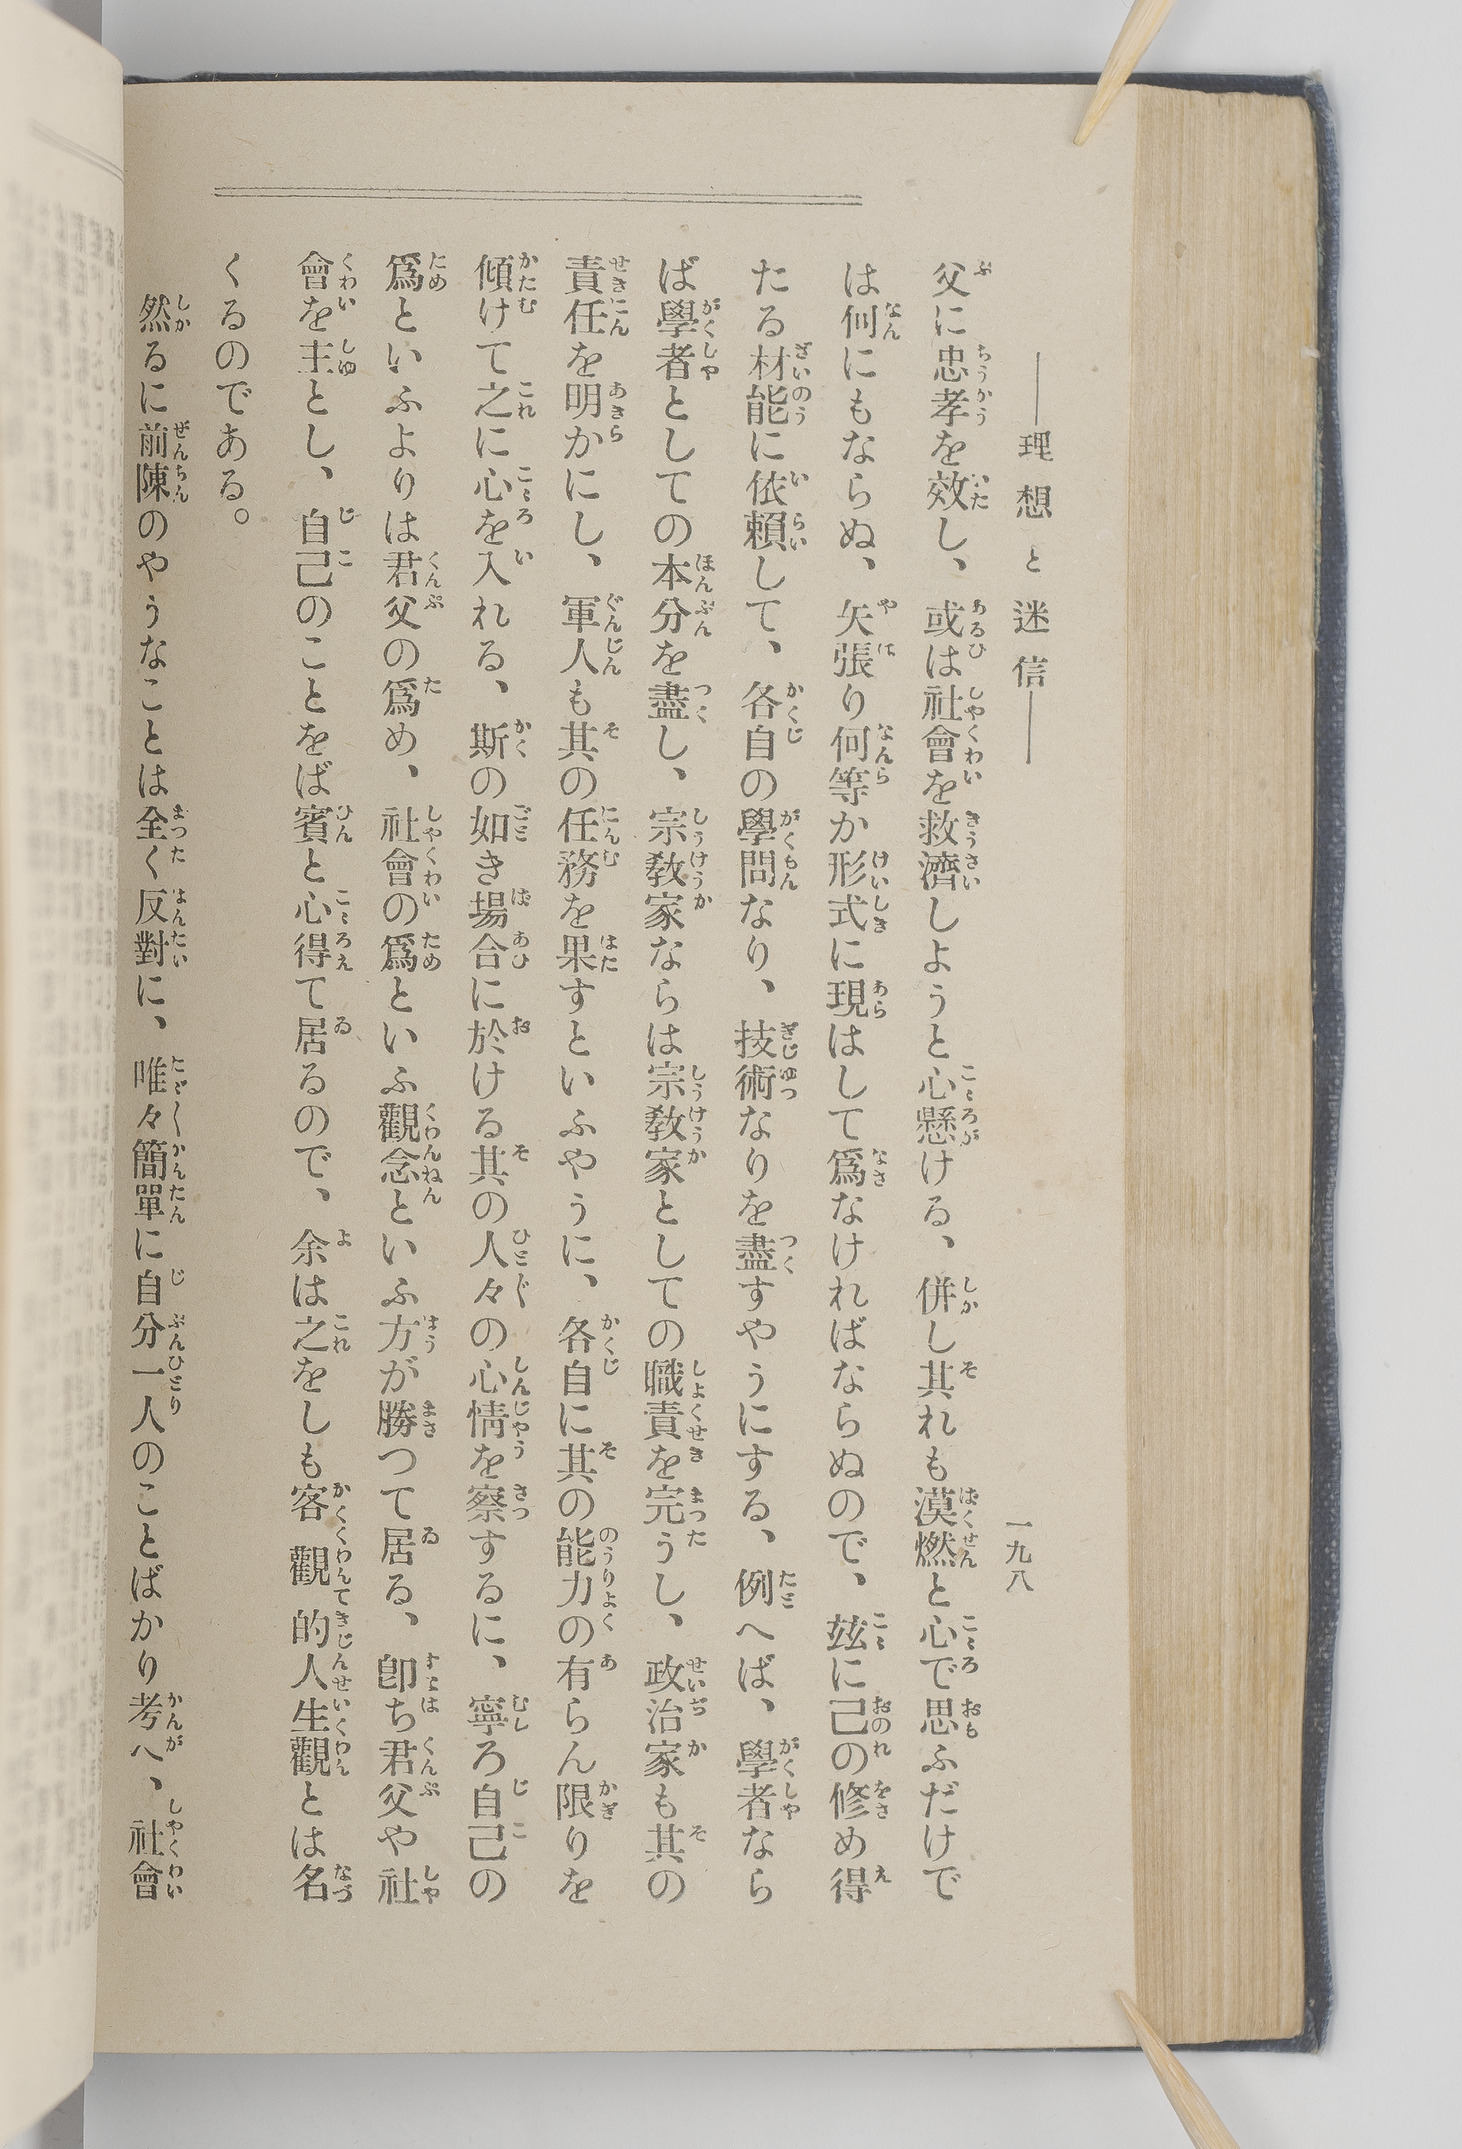 ―理想と迷信―
一九八
父に忠孝を效し、或は社會を救濟しようと心懸ける、併し其れも漠燃と心で思ふだけで
は何にもならぬ、矢張り何等か形式に現はして爲なければならぬので、玆に己の修め得
たる材能に依賴して、各自の學問なり、技術なりを盡すやうにする、例へば、學者なら
ば學者としての本分を盡し、宗教家ならは宗教家としての職責を完うし、政治家も其の
責任を明かにし、軍人も其の任務を果すといふやうに、各自に其の能力の有らん限りを
傾けて之に心を入れる、斯の如き場合に於ける其の人々の心情を察するに、寧ろ自己の
爲といふよりは君父の爲め、社會の爲といふ觀念といふ方が勝つて居る、卽ち君父や社
會を主とし、自己のことをば賓と心得て居るので、余は之をしも客觀的人生觀とは名
くるのである。
然るに前陳のやうなことは全く反對に、唯々簡單に自分一人のことばかり考へ、社會